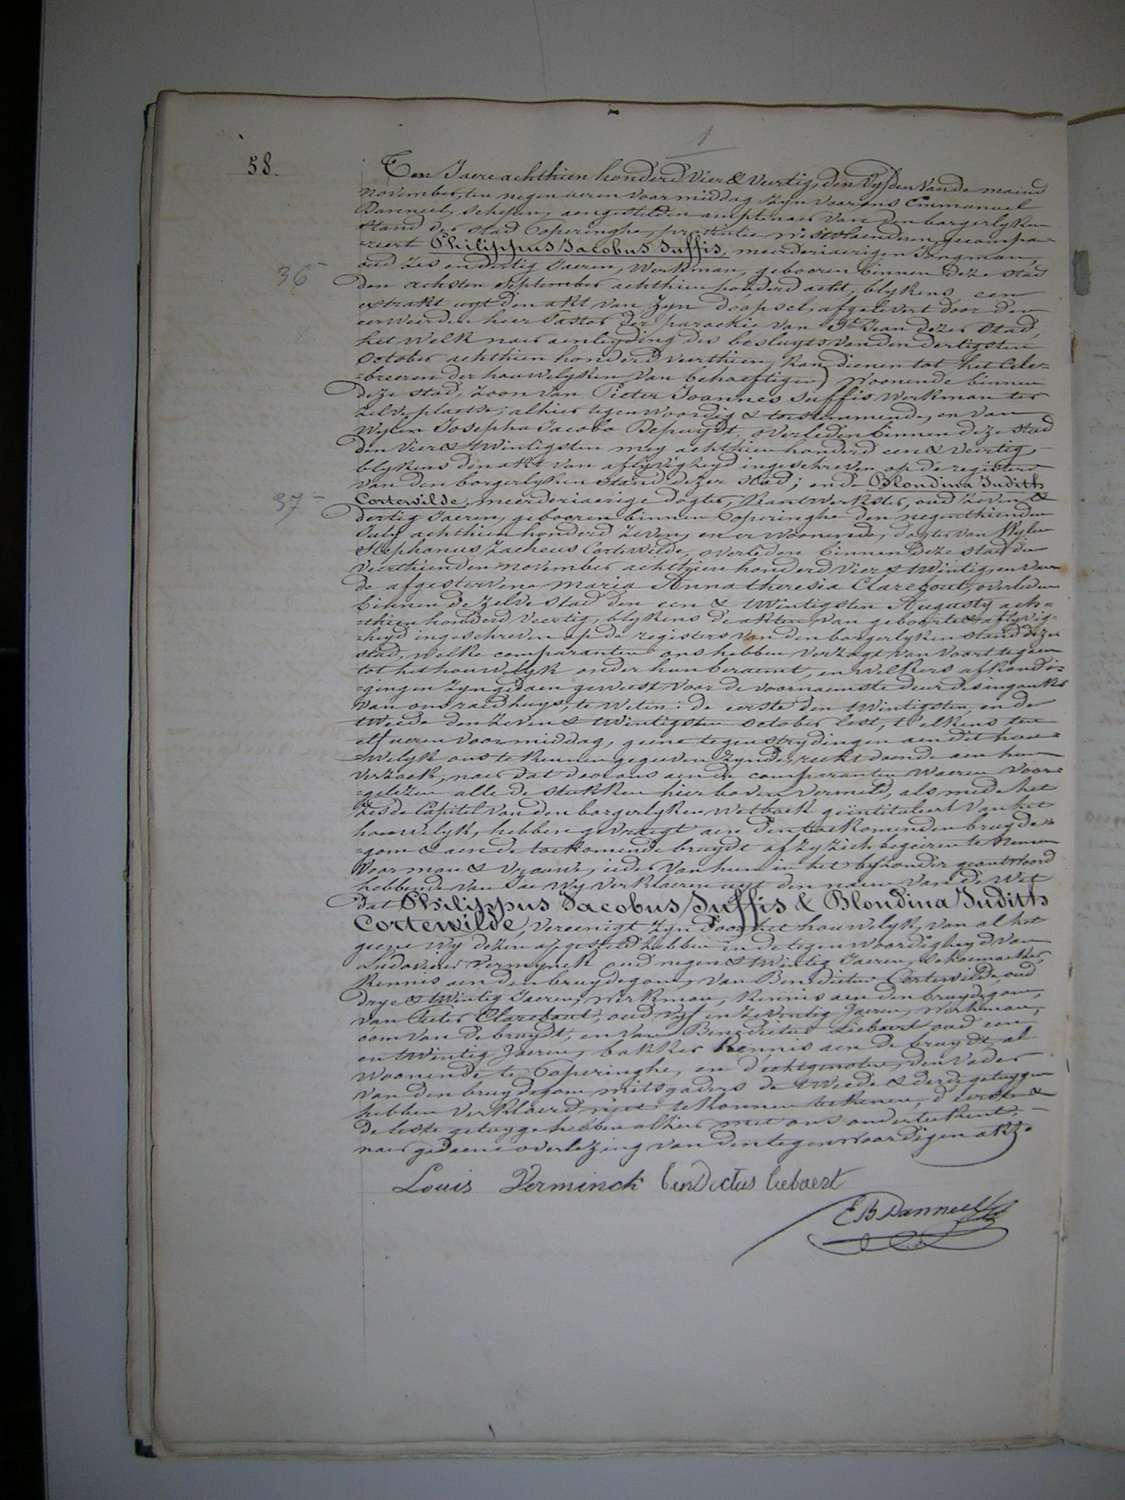 1
58.
Ten Jaere achthien honderd Vier & Veertig, den Vyfden Van de maend
November, ten negen uren voormiddag Zyn voor ons Emmanuel
schepen, aengestelden amptenaer Van den borgerlyken
stand der stad Poperinghe, provintie Westvlaenderen, gecompa=
=reert Philippus Jacobus Suffis, meerderjaerigen Jongman,
36
oud Zes en dertig Jaeren, Werkman, gebooren binnen deze stad
den achsten september achthien honderd acht, blykens een
extrakt uyt den akt van Zyn doopsel, afgelevert door den
eerweerden heer Pastor der parochie van St. Jean dezer stad,
het welk naer aenleyding des besluyts van den dertigsten
October achthien honderd veerthien, kan dienen tot het Cele=
=breeren der houwelyken Van behoeftigen) Woonende binnen
deze stad, Zoon Van Pieter Joannes Suffis Werkman ter
Zelve plaetse, alhier tegenwoordig & toestemmende, en Van
Wylen Josepha Jacoba Depuydt, overleden binnen deze stad
den Vier & twintigsten mey achthien honderd een & Veertig,
blykens den akt van aflyvigheyd ingeschreven op de registers
van den borgerlyken stand dezer stad; ende Blondina Judith
37
Cortewilde, meerderjaerige dogter, Kantwerkster, oud Zeven &
dertig Jaeren, gebooren binnen Poperinghe den negenthienden
July achthien honderd Zeven, en er Woonende, dogter van Wylen
Stephanus Zacheus Cortewilde, overleden binnen deze stad den
Veerthienden November achthien honderd Vier & twintig, en van
de afgestorvene Maria Anna Theresia Clarebout, overleden
binnen de Zelve stad den een & twintigsten Augusty ach=
=thien honderd Veertig, blykens de akten van geboorte & aflyvig=
=heyd ingeschreven op de registers van den borgerlyken stand dezer
stad, welke comparanten ons hebben verzogt van voort te gaen
tot het houwelyk onder hun beraemt, en welkers afkondi=
=gingen zyn gedaen geweest voor de voornaemste deur des ingank
Van ons raedhuys, te Weten: de eerste den twintigsten, en de
tweede den Zeven & twintigsten October lest, telkens ten
elf ueren voormiddag, geene tegenstrydingen aen dit hou=
=welyk ons te kennen gegeven Zynde, recht doende aen hun
verzoek, naer dat door ons aen de comparanten Waeren Voor=
=gelezen alle de stukken hier boven vermeld, als mede het
Zesde Capitel van den borgerlyken Wetboek geintituleert Van het
houwelyk, hebben gevraegt aen den toekomenden bruyde=
=gom & aen de toekomende bruydt of Zy Zich begeeren te nemen
voor man & Vrouwe, ieder van hun in het byzonder geantwoord
hebbende Van Jae Wy verklaeren uyt den naem van de Wet
dat Philippus Jacobus Suffis & Blondina Judith
Cortewilde, Vereenigt Zyn door het houwelyk, van al het
geene Wy dezen opgesteld hebben in de tegenwoordigheyd van
Ludovicus Verminck oud negen & twintig Jaeren, schoenmaker,
Kennis aen den bruydegom, van Benedictus Cortewilde, oud
drye & twintig Jaeren, Werkman, Kennis aen den bruydegom,
van Pieter Clarebout, oud vyf en Zeventig Jaeren, Werkman,
oom van de bruydt, en van Benedictus Liebaert oud een
en twintig Jaeren, bakker Kennis aen de bruydt, al
woonende te Poperinghe, en d'echtgenoten, den Vader
van den bruydegom mitsgaders de tweede & derde getuygen
hebben verklaerd niet te konnen teekenen, d'eerste &
de leste getuyge hebben alhier met ons onderteekent,
naer gedaene overlezing van den tegenwoordigen akt.
Louis Verminck bendictus liebaert